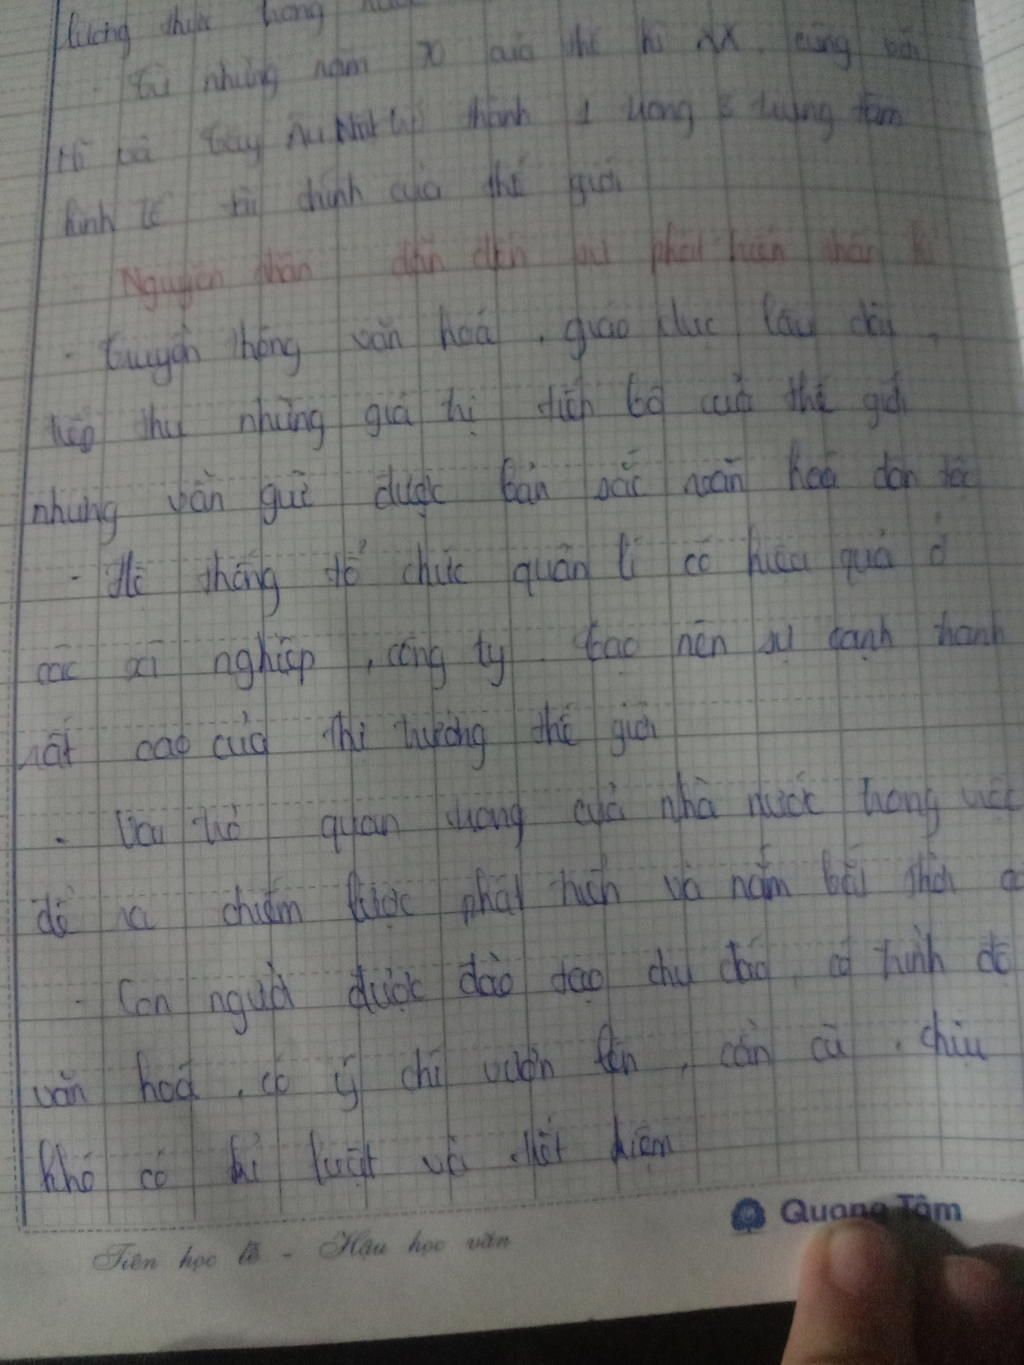 lương thực trong
Từ những năm 70 của thế kỉ XX, cùng với
Mĩ và Tây Âu Nhật trở thành 1 trong 3 trung tâm
kinh tế tài chính của thế giới
Nguyên nhân dẫn đến sự phát triển thần kì
- Truyền thống văn hoá, giáo dục lâu đời,
tiếp thu những giá trị tiến bộ của thế giới
nhưng vẫn giữ được bản sắc văn hoá dân tộc
- Hệ thống tổ chức quản lí có hiệu quả ở
các xí nghiệp, công ty tạo nên sự cạnh tranh
rất cao của thị trường thế giới
- Vai trò quan trọng của nhà nước trong việc
đề ra chiếm lược phát triển và nắm bắt thời cơ
- Con người được đào tạo chu đáo, có trình độ
văn hoá, có ý chí vươn lên, cần cù, chịu
khó có kỉ luật và tiết kiệm
Quang Tâm
Tiên học lễ - Hậu học văn